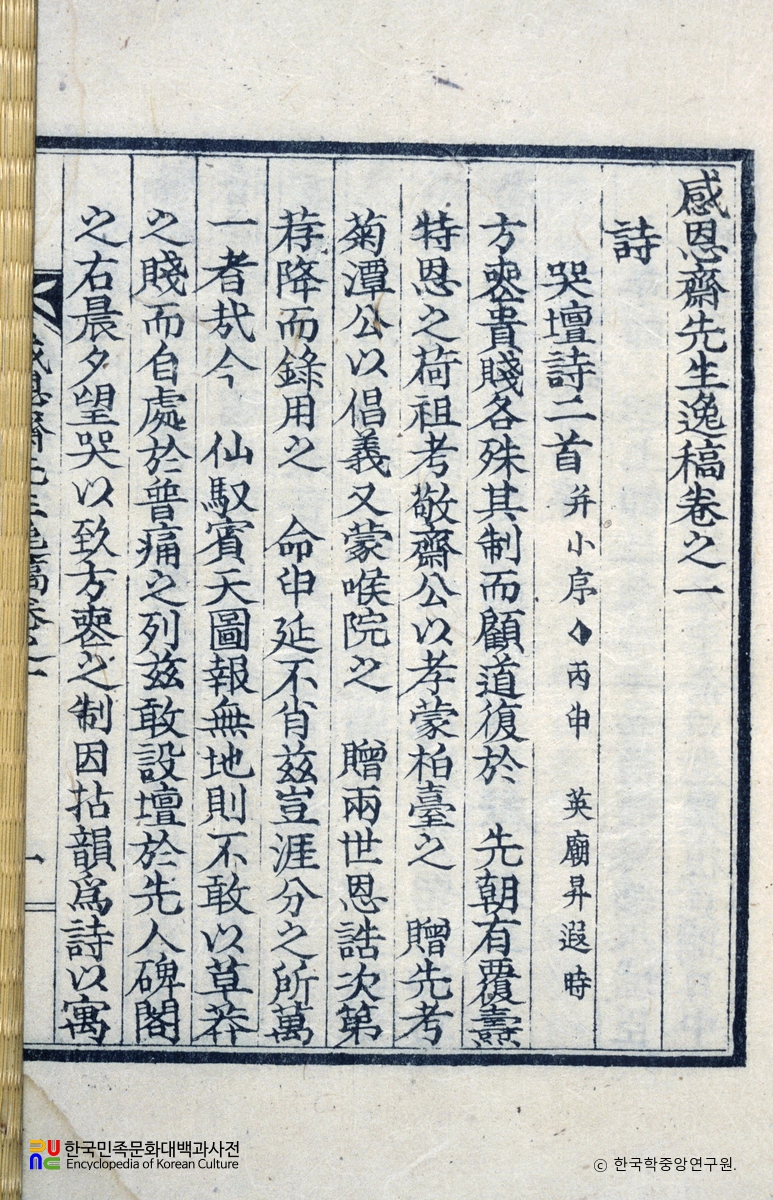 感恩齋先生逸稿卷之一
詩
哭壇詩二首 并小序 丙申 英廟昇遐時
方喪貴賤各殊其制而顧道復於 先朝有覆燾
特恩之荷祖考敬齋公以孝蒙柏臺之 贈先考
菊潭公以倡義又蒙喉院之 贈兩世恩誥次第
荐降而錄用之 命申延不肖茲豈涯分之所萬
一者哉今 仙馭賓天圖報無地則不敢以草莽
之賤而自處於普痛之列茲敢設壇於先人碑閣
之右晨夕望哭以致方喪之制因拈韻爲詩以寓
感恩齋先生逸稿卷之一 一
한국민족문화대백과사전
Encyclopedia of Korean Culture
© 한국학중앙연구원.